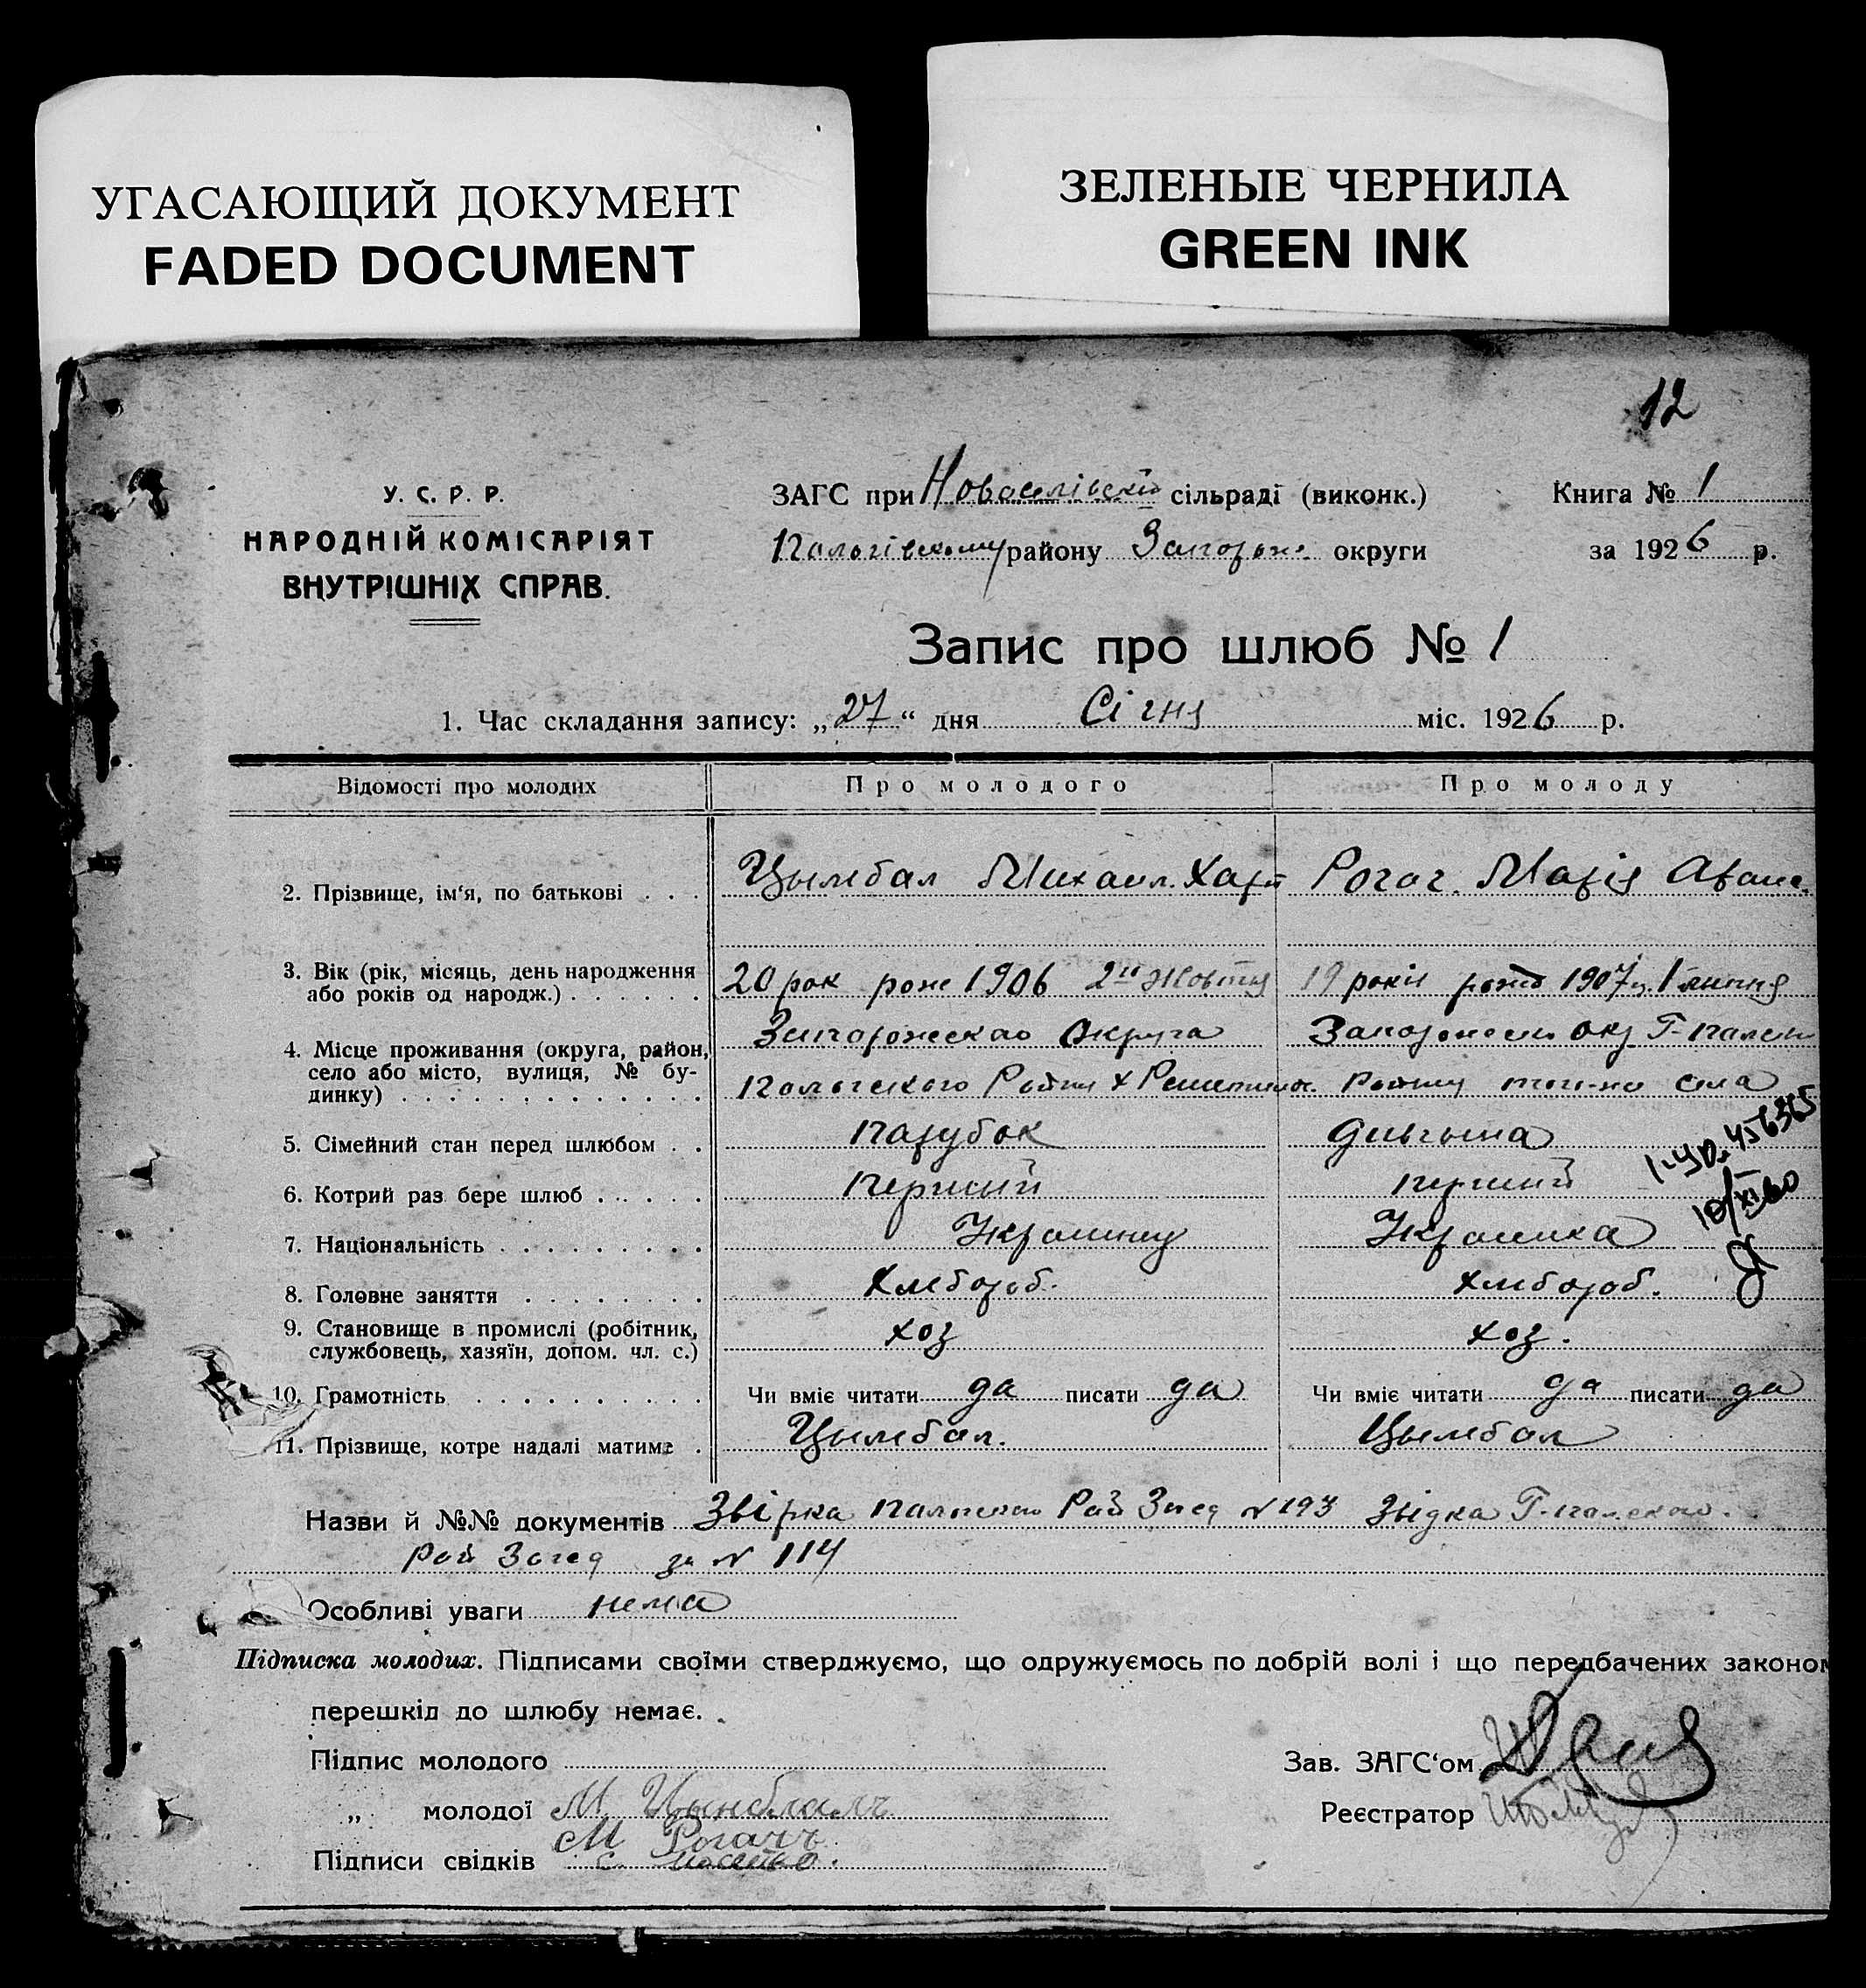 УГАСАЮЩИЙ ДОКУМЕНТ
FADED DOCUMENT
ЗЕЛЕНЫЕ ЧЕРНИЛА
GREEN INK
12
У. С. Р. Р.
НАРОДНІЙ КОМІСАРІЯТ
ВНУТРІШНІХ СПРАВ.
ЗАГС при Новоселівській сільраді (виконк.)
Книга № 1
Пологівському району Запорож. округи
за 1926 р.
Запис про шлюб № 1
1. Час складання запису: „27“ дня Січня міс. 1926 р.
Відомості про молодих Про молодого Про молоду
2. Прізвище, ім‘я, по батькові . . . Цымбал Михаил. Хар Рогач. Марія Афана.
3. Вік (рік, місяць, день народження
або років од народж.) . . . . . . 20 рок рож 1906 2го Жовтня 19 років рожд 1907 р. 1 липня
4. Місце проживання (округа, район,
село або місто, вулиця, № бу-
динку) . . . . . . . . . . . . .
Запорожскао Округа
Запорожско окр Г-
Пологского Района Х
Району села
5. Сімейний стан перед шлюбом . . парубок дивчына
6. Котрий раз бере шлюб . . . . . перший перший
7. Національність . . . . . . . . . Украинец Украинка
8. Головне заняття . . . . . . . . хлебороб. хлебороб.
9. Становище в промислі (робітник,
службовець, хазяїн, допом. чл. с.) хоз хоз.
10. Грамотність . . . . . . . . . . Чи вміє читати да писати да Чи вміє читати да писати да
11. Прізвище, котре надалі матиме . Цымбал. Цымбал
10/XI 60
Назви й №№ документів Рай Загс № 193 Г-
Рай Загс за № 114
Особливі уваги нема
Підписка молодих. Підписами своїми стверджуємо, що одружуємось по добрій волі і що передбачених законом
перешкід до шлюбу немає.
Підпис молодого
Зав. ЗАГС‘ом
„ молодої М Цымбалъ
Реєстратор
М Рогачъ
Підписи свідків С.